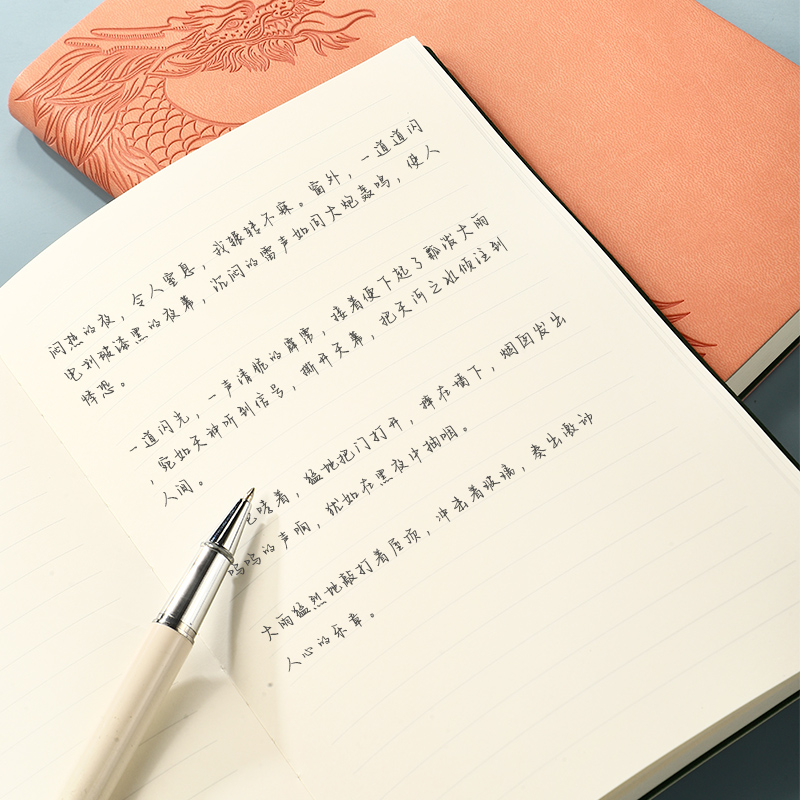 闷热的夜，令人窒息，我辗转不寐。窗外，一道道闪
电划破漆黑的夜幕，沉闷的雷声如同大炮轰鸣，使人
悸恐。
一道闪光，一声清脆的霹雳，接着便下起了瓢泼大雨
，宛如天神听到信号，撕开天幕，把天河之水倾注到
人间。
咆哮着，猛地把门打开，摔在墙下，烟囱发出
呜呜的声响，犹如在黑夜中抽咽。
大雨猛烈地敲打着屋顶，冲击着玻璃，奏出激动
人心的乐章。